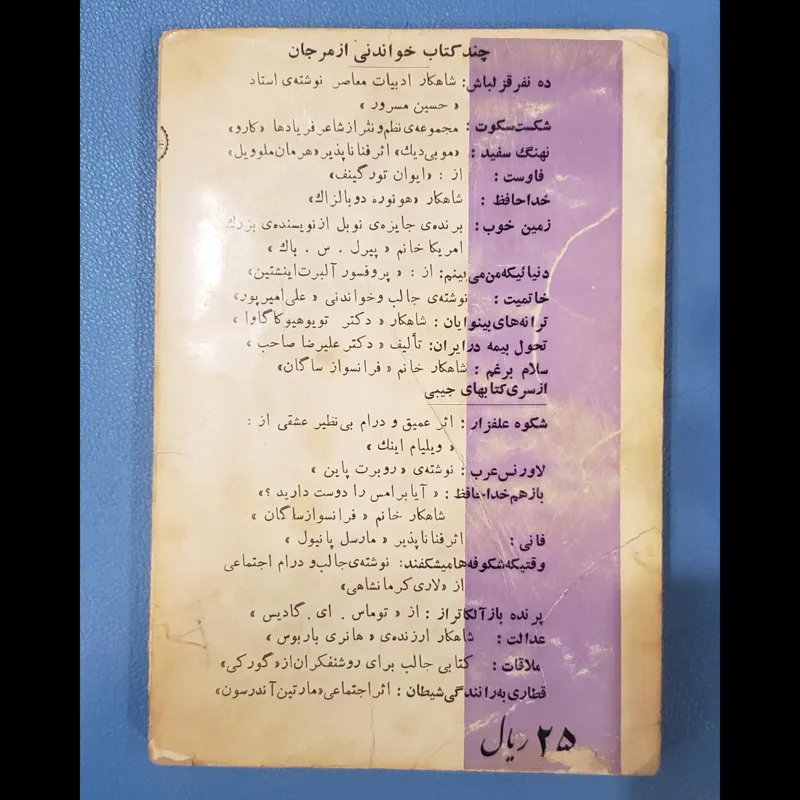 چند کتاب خواندنی از مرجان
ده نفر قزلباش: شاهکار ادبیات معاصر نوشته‌ی استاد
« حسین مسرور »
شکست سکوت : مجموعه‌ی نظم و نثر از شاعر فریادها «کارو»
نهنگ سفید : «موبی دیك» اثر فناناپذیر «هرمان ملوویل»
فاوست : از : «ایوان تورگینف»
خداحافظ : شاهکار «هونوره دو بالزاك»
زمین خوب: برنده‌ی جایزه‌ی نوبل از نویسنده‌ی بزرك
امریکا خانم « پیرل . س . باك »
دنیائیکه من می‌بینم: از : « پروفسور آلبرت اینشتین»
خاتمیت : نوشته‌ی جالب و خواندنی « علی امیرپور»
ترانه‌های بینوایان: شاهکار « دکتر تویوهیو کاگاوا »
تحول بیمه در ایران: تألیف « دکتر علیرضا صاحب »
سلام بر غم : شاهکار خانم « فرانسواز ساگان»
از سری کتابهای جیبی
شکوه علفزار : اثر عمیق و درام بی‌نظیر عشقی از :
« ویلیام اینك »
لاورنس عرب : نوشته‌ی « روبرت پاین »
بازهم خداحافظ : « آیا برامس را دوست دارید ؟»
شاهکار خانم « فرانسواز ساگان »
فانی : اثر فناناپذیر « مارسل پانیول »
وقتیکه شکوفه‌ها میشکفند: نوشته‌ی جالب و درام اجتماعی
از «لاری کرمانشاهی»
پرنده باز آلکاتراز : از « توماس . ای . گادیس »
عدالت : شاهکار ارزنده‌ی « هانری باربوس »
ملاقات : کتابی جالب برای روشنفکران از «گورکی»
قطاری به رانندگی شیطان : اثر اجتماعی «مارتین آندرسون»
۲۵ ریال